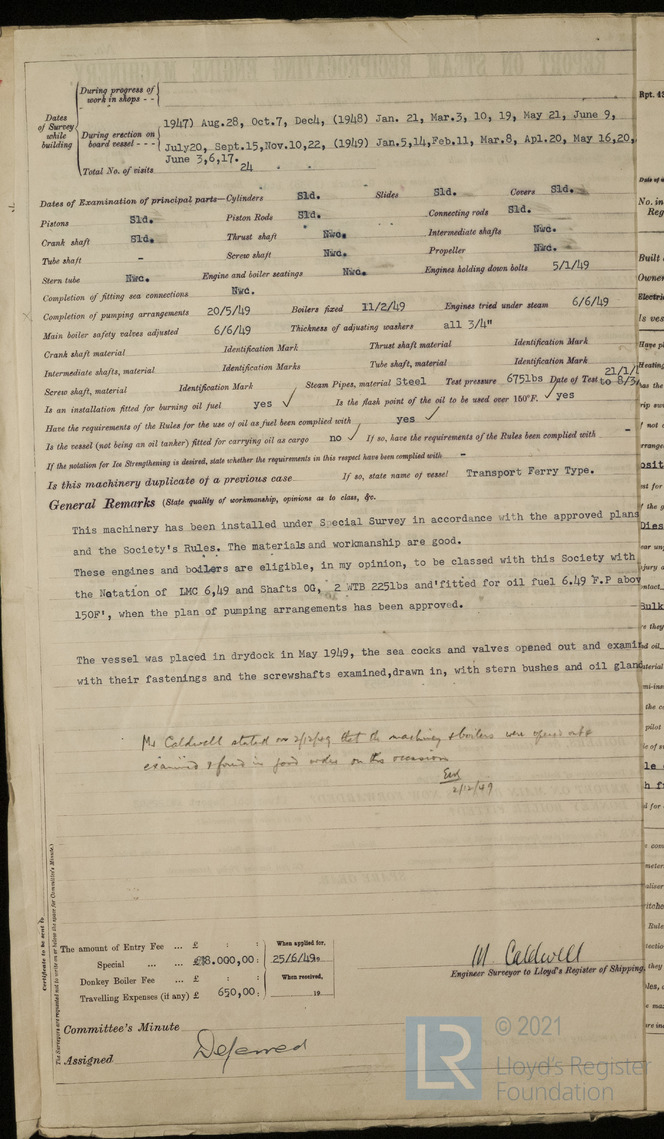 During progress of
work in shops - -
Dates
of Survey
while
building
During erection on
board vessel - - -
1947) Aug.28, Oct.7, Dec4, (1948) Jan. 21, Mar.3, 10, 19, May 21, June 9,
July20, Sept.15,Nov.10,22, (1949) Jan.5,14,Feb.11, Mar.8, Apl.20, May 16,20,
June 3,6,17.
Total No. of visits 24
Dates of Examination of principal parts—Cylinders Sld. Slides Sld. Covers Sld.
Pistons Sld. Piston Rods Sld. Connecting rods Sld.
Crank shaft Sld. Thrust shaft Nwc. Intermediate shafts Nwc.
Tube shaft - Screw shaft Nwc. Propeller Nwc.
Stern tube Nwc. Engine and boiler seatings Nwc. Engines holding down bolts 5/1/49
Completion of fitting sea connections Nwc.
Completion of pumping arrangements 20/5/49 Boilers fixed 11/2/49 Engines tried under steam 6/6/49
Main boiler safety valves adjusted 6/6/49 Thickness of adjusting washers all 3/4"
Crank shaft material Identification Mark Thrust shaft material Identification Mark
Intermediate shafts, material Identification Marks Tube shaft, material Identification Mark
Screw shaft, material Identification Mark Steam Pipes, material Steel Test pressure 675lbs Date of Test 21/1/ to 8/3/
Is an installation fitted for burning oil fuel yes ✓ Is the flash point of the oil to be used over 150°F. ✓ yes
Have the requirements of the Rules for the use of oil as fuel been complied with yes ✓
Is the vessel (not being an oil tanker) fitted for carrying oil as cargo no ✓ If so, have the requirements of the Rules been complied with -
If the notation for Ice Strengthening is desired, state whether the requirements in this respect have been complied with -
Is this machinery duplicate of a previous case If so, state name of vessel Transport Ferry Type.
General Remarks (State quality of workmanship, opinions as to class, &c.
This machinery has been installed under Special Survey in accordance with the approved plans
and the Society's Rules. The materials and workmanship are good.
These engines and boilers are eligible, in my opinion, to be classed with this Society with
the Notation of LMC 6,49 and Shafts OG, 2 WTB 225lbs and fitted for oil fuel 6.49 F.P abov
150F', when the plan of pumping arrangements has been approved.
The vessel was placed in drydock in May 1949, the sea cocks and valves opened out and examin
with their fastenings and the screwshafts examined,drawn in, with stern bushes and oil gland
Mr Caldwell stated on 2/12/49 that the machinery & boilers were opened out &
examined & found in good order on this occasion
2/12/49
Certificate to be sent to
The Surveyors are requested not to write on or below the space for Committee's Minute.
The amount of Entry Fee ... £ : : When applied for,
Special ... ... £18.000,00: 25/6/49.
Donkey Boiler Fee ... £ : : When received,
Travelling Expenses (if any) £ 650,00: 19
M. Caldwell
Engineer Surveyor to Lloyd's Register of Shipping,
Committee's Minute
Assigned Deferred
LR © 2021
Lloyd's Register
Foundation
Rpt. 43
No. in
Reg
Built
Owner
Electric
Is ves